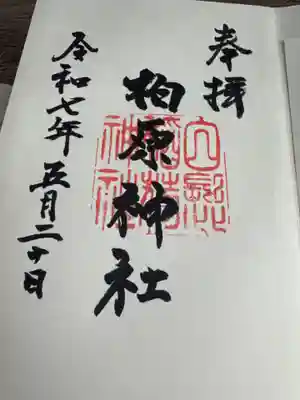 奉拝
柏原神社
令和七年 五月二十日